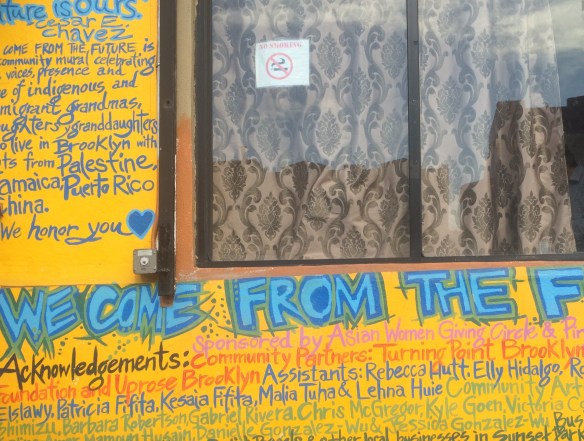 future is ours."
-Cesar E.
Chavez
COME FROM THE FUTURE is
community mural celebrating
voices, presence and
of indigenous, and
immigrant grandmas,
daughters y granddaughters
o live in Brooklyn with
ts from Palestine,
Jamaica, Puerto Rico
China.
We honor you
NO SMOKING
WE COME FROM THE F
Sponsored by Asian Women Giving Circle & P
Acknowledgements: Community Partners: Turning Point Brooklyn
Foundation and Uprose Brooklyn Assistants: Rebecca Hutt, Elly Hidalgo, Ro
Elslawy, Patricia Fifita, Kesaia Fifita, Malia Tuha & Lehna Huie Community Ar
Shimizu, Barbara Robertson, Gabriel Rivera, Chris McGregor, Kyle Goen, Victoria C
Mamoun Husain, Danielle Gonzalez-Wu & Jessica Gonzalez-Wu
& other local businesses in Sunset